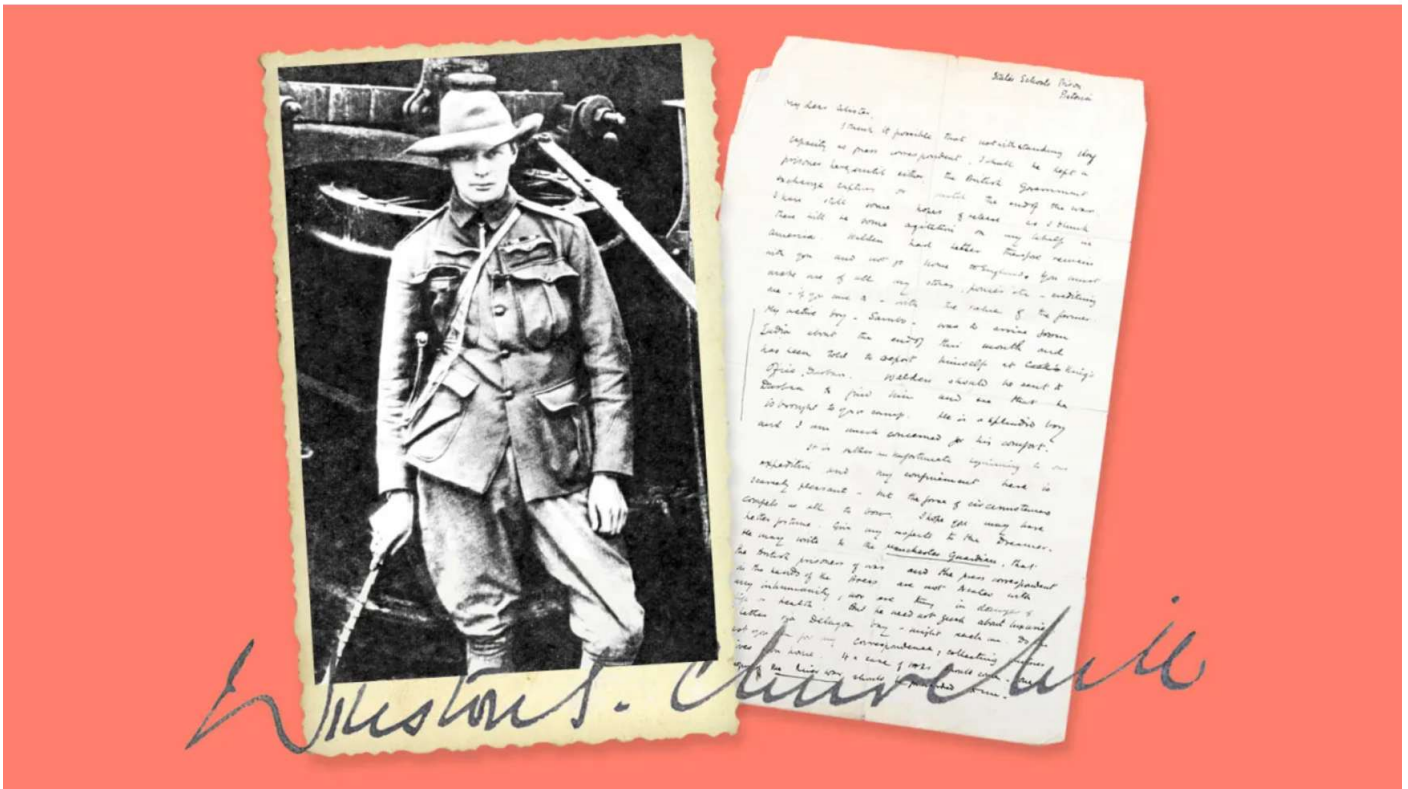 States Schools Prison
Pretoria
My dear
I think it possible that notwithstanding my
capacity as press correspondent, I shall be kept a
prisoner here until either the British Government
exchange captives or until the end of the war.
I have still some hopes of release as I think
there will be some agitation on my behalf in
America. Walden had better therefore remain
with you and not go home to England. You must
make use of all my stores, ponies etc - crediting
me - if you use it - with the value of the former.
My native boy - Sambo - was to arrive from
India about the end of this month and
has been told to report himself at King's
Office, Durban. Walden should be sent to
Durban to find him and see that he
is brought to your camp. He is a splendid boy
and I am much concerned for his comfort.
It is rather an unfortunate beginning to our
expedition and my confinement here is
scarcely pleasant - but the force of circumstances
compels us all to bow. I hope you may have
better fortune. Give my respects to the Dreamer.
He may write to the Manchester Guardian, that
the British prisoners of war and the press correspondent
in the hands of the Boers are not treated with
any inhumanity, nor are they in danger of
life or health. But he need not speak about
letter via Delagoa Bay - might reach me. Do
for my correspondence, collecting
home. If a case of should come
should be forwarded
Winston S. Churchill